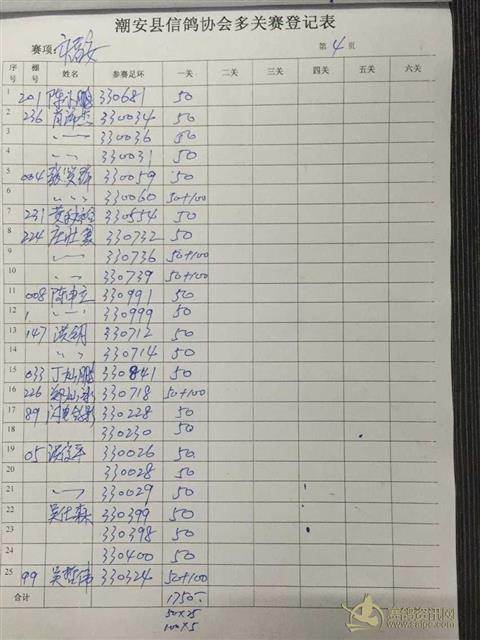 潮安县信鸽协会多关赛登记表
赛项: 第 4 页
序号 棚号 姓名 参赛足环 一关 二关 三关 四关 五关 六关
1 201 陈小鹏 330681 50
2 236 330034 50
3 〃 330036 50
4 〃 330031 50
5 004 330059 50
6 〃 330060 50+100
7 231 330554 50
8 224 330732 50
9 〃 330736 50+100
10 〃 330739 50+100
11 008 陈中立 330991 50
12 330999 50
13 147 洪钢 330712 50
14 〃 330714 50
15 033 丁灿鹏 330841 50
16 226 330718 50+100
17 89 330228 50
18 330230 50
19 05 330026 50
20 330028 50
21 〃 330029 50
22 吴仕森 330399 50
23 330398 50
24 330400 50
25 99 吴哲伟 330324 50+100
合计 1750
50×25
100×5
赛鸽资讯网
www.saige.com